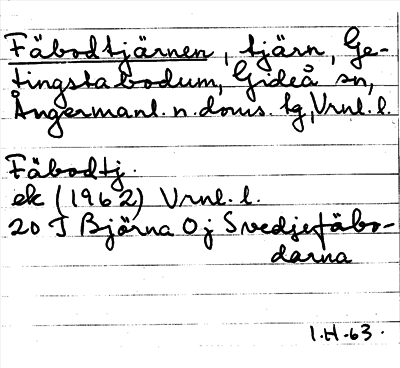 Fäbodtjärnen, tjärn, Ge-
tingstabodum, Gideå sn,
Ångermanl. n. doms. tg, Vrnl. l.
Fäbodtj.
ek (1962) Vrnl. l.
20 J Björna Oj Svedjefäbo-
darna
I.H-63.